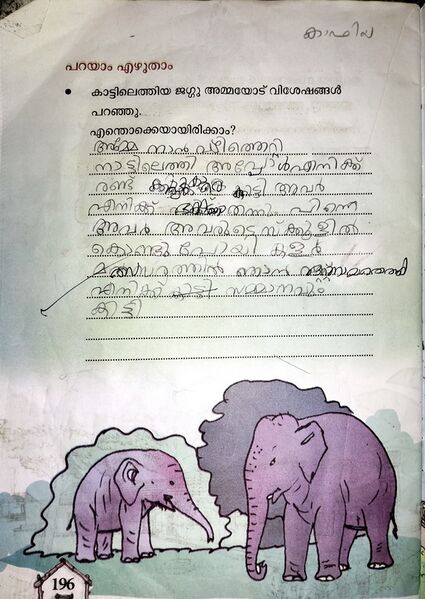 കാഫില
പറയാം എഴുതാം
• കാട്ടിലെത്തിയ ജഗ്ഗു അമ്മയോട് വിശേഷങ്ങൾ
പറഞ്ഞു.
എന്തൊക്കെയായിരിക്കാം?
അമ്മ ഞാൻ വഴിതെറ്റി
നാട്ടിലെത്തി അപ്പോൾ എനിക്ക്
രണ്ട് കിട്ടി അവർ
എനിക്ക് തന്നും പിന്നെ
അവർ അവരുടെ സ്ക്കൂളിൽ
കൊണ്ടു പോയി കളർ
മത്സരത്തിൽ ഞാൻ
എനിക്ക് കിട്ടി സമ്മാനവും
കിട്ടി
196